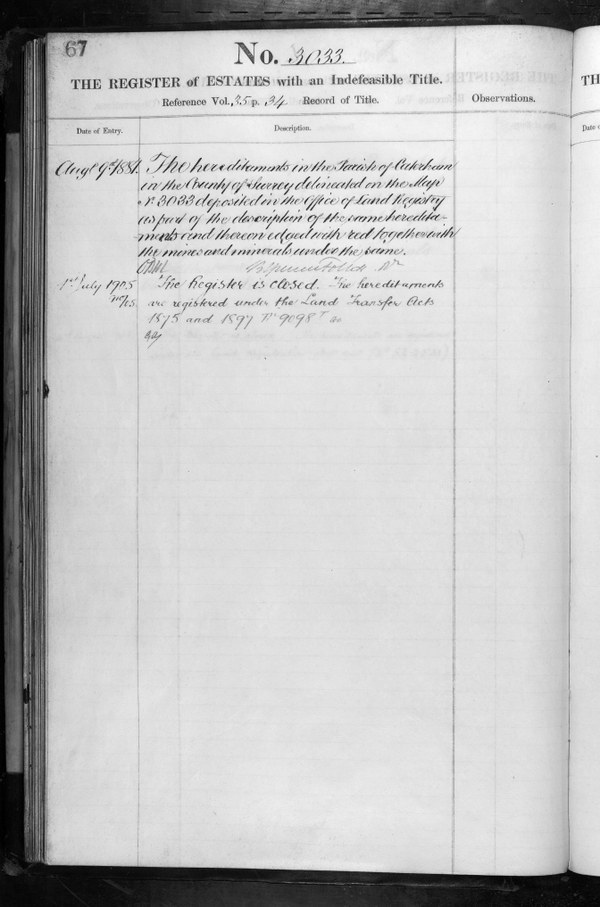 67
No. 3033.
THE REGISTER of ESTATES with an Indefeasible Title.
Reference Vol. 35 p. 34 Record of Title.
Observations.
Date of Entry.
Description.
Augt 9th 1887.
The hereditaments in the Parish of Caterham
in the County of Surrey delineated on the Map
No 3033 deposited in the Office of Land Registry
as part of the description of the same heredita-
ments and thereon edged with red together with
the mines and minerals under the same.
1st July 1905
The Register is closed. The hereditaments
are registered under the Land Transfer Acts
1875 and 1897 No 9098
TH
Date o